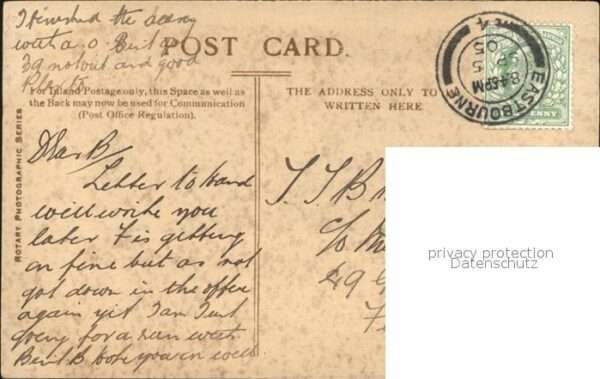 I finished the
with a o
39 not out and good
POST CARD.
For Inland Postage only, this Space as well as
the Back may now be used for Communication
(Post Office Regulation).
THE ADDRESS ONLY TO
WRITTEN HERE
ROTARY PHOTOGRAPHIC SERIES
EASTBOURNE
8.45PM
05
PENNY
Dear B
Letter to hand
will write you
later F is getting
on fine but as not
got down in the office
again yet I am Just
going for a run with
Bert B hope you're well
49
privacy protection
Datenschutz